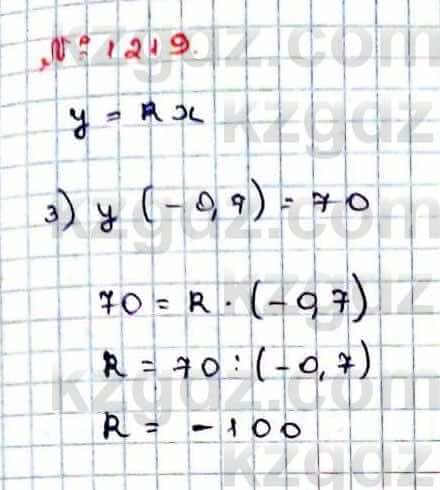 № 1219.
y = kx
3) y (-0,7) = 70
70 = k · (-0,7)
k = 70 : (-0,7)
k = -100
kzgdz.com